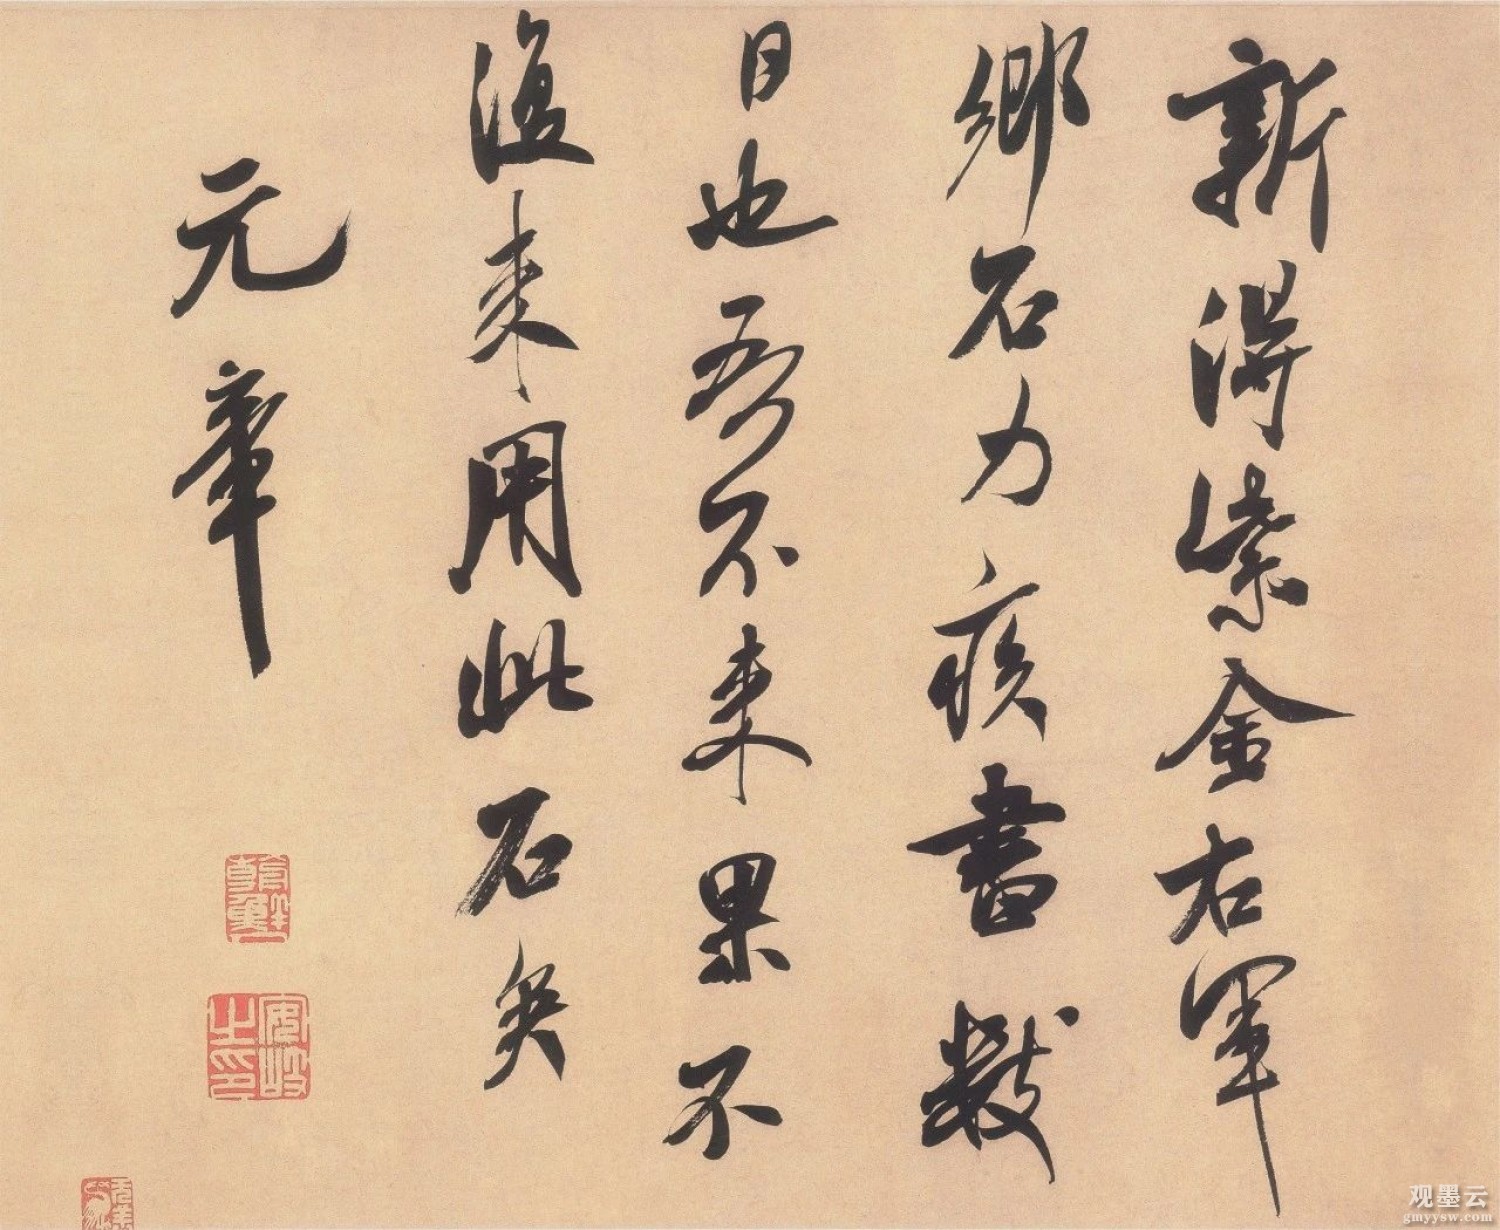 新得紫金右軍
鄉石力疾書數
日也吾不來果不
復來用此石矣
元章
安岐之印
观墨云
gmyysw.com